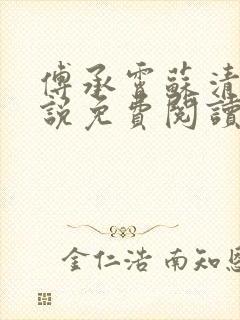 傅承霄蘇清
說免費閱讀
金仁浩 南知恩